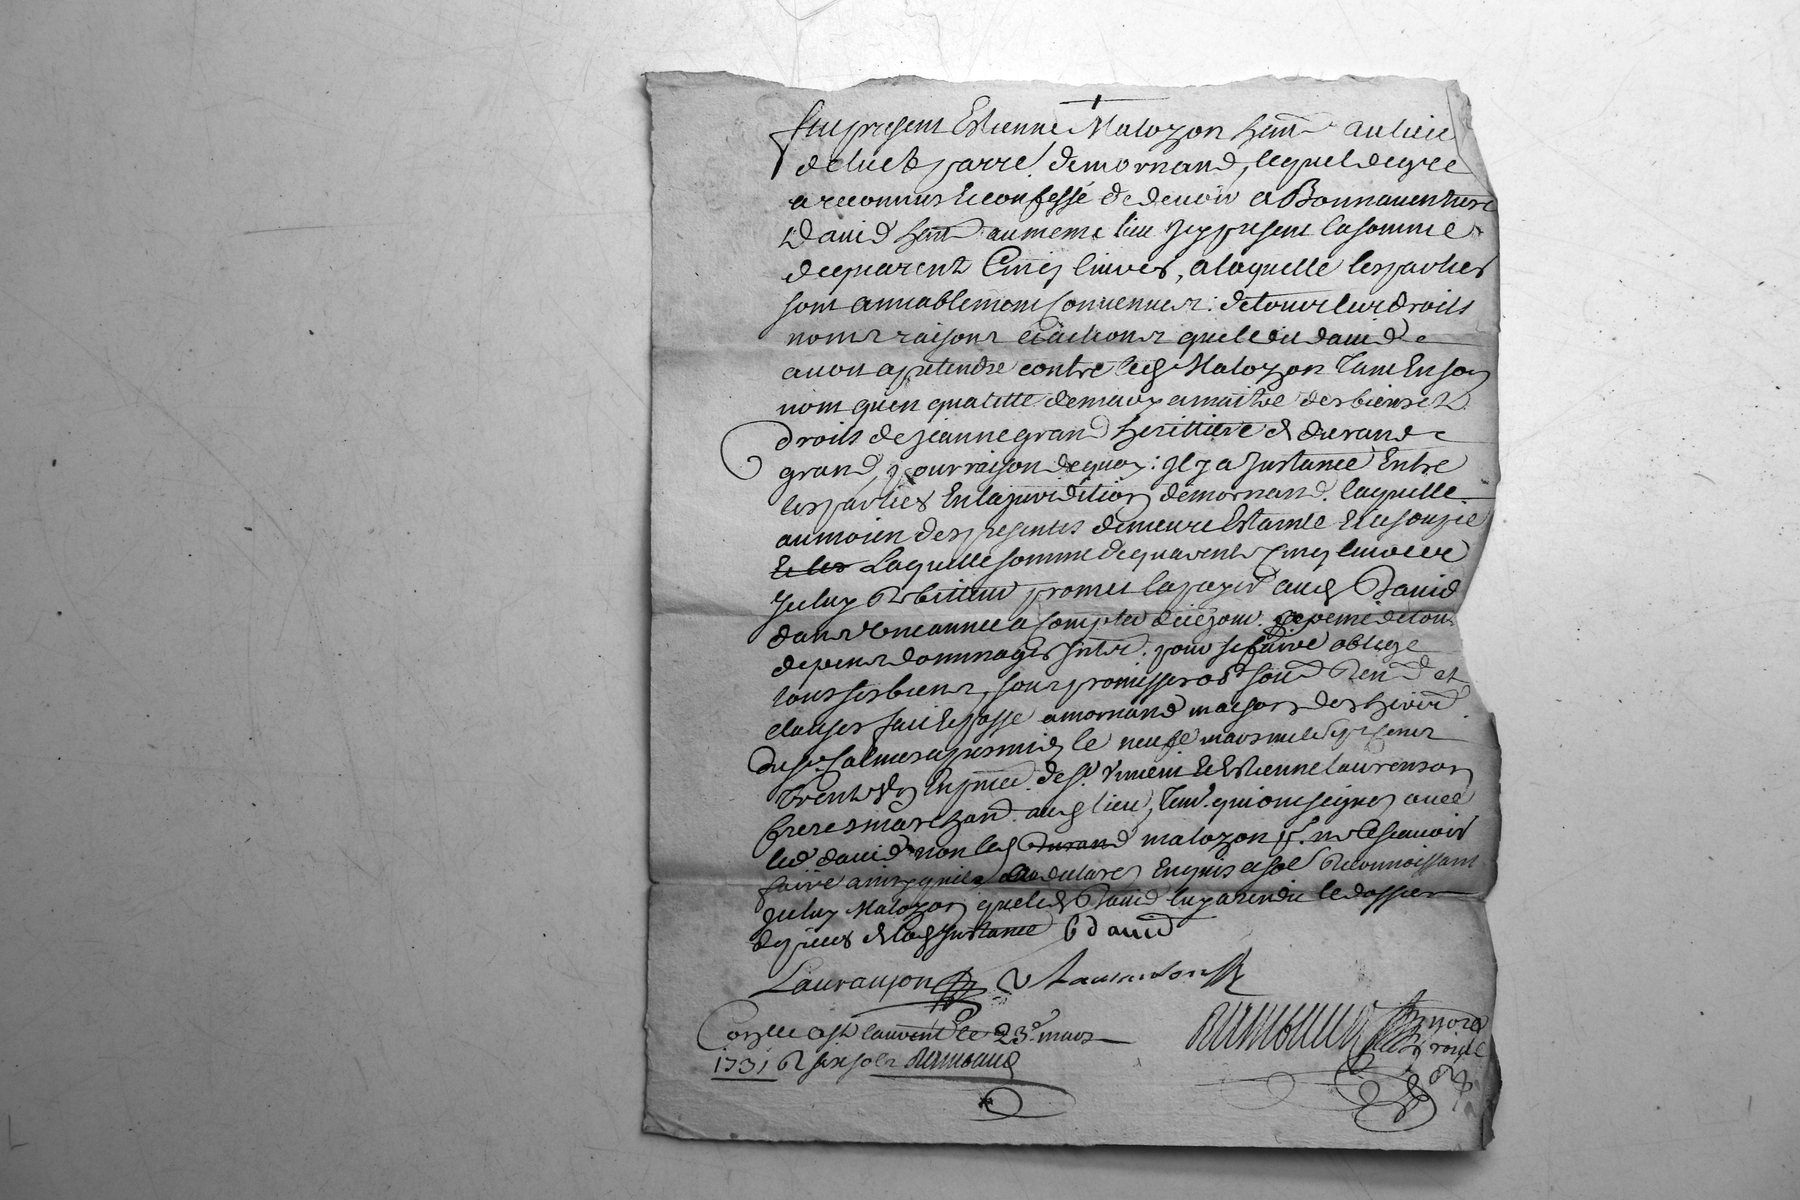 fut present Estienne Malozon hant au lieu
de luet parre. de mornand, lequel de gre
a reconnus et confessé de devoir a Bonnaventure
David hant au meme lieu icy present la somme
de quarent Cinq livres, a laquelle les parties
sont amiablement convenues: de tous leur droits
noms raisons et actions que ledit david
avoit a pretendre contre led Malozon Tant En son
nom qu'en qualitte de mary a maitre des biens et
droits de jeanne grand herittiere de durand
grand, pour raison de quoy: il y a Instance Entre
les parties En la juridition de mornand. laquelle
au moien des presentes demeure Estainte et assoupie
Laquelle somme de quarente Cinq livres
Iceluy debiteur promet la payer aud David
dans Une annee a Compter de ce jour. a peine de tous
depens dommages Inter. pour se faire oblige
tous ses biens, sous promissions sou Ren et
clauses fait et passé a mornand maison des heirs
du sr Salmes apres midy le neufe mars mil sept cent
trente Un En pnce de sr Vincent et Estienne laurenson
freres marchand aud lieu, tem. qui ont signes avec
led david non led malozon p. ne scavoir
faire ainsy qu'il a declare Enquis et sol Reconnoissant
Iceluy Malozon que led David luy a rendu le dossier
de pieces de lad Instance b david
Lauranson V Lauranson
Conlle a st laurent le 23e mars
1731 R six sols